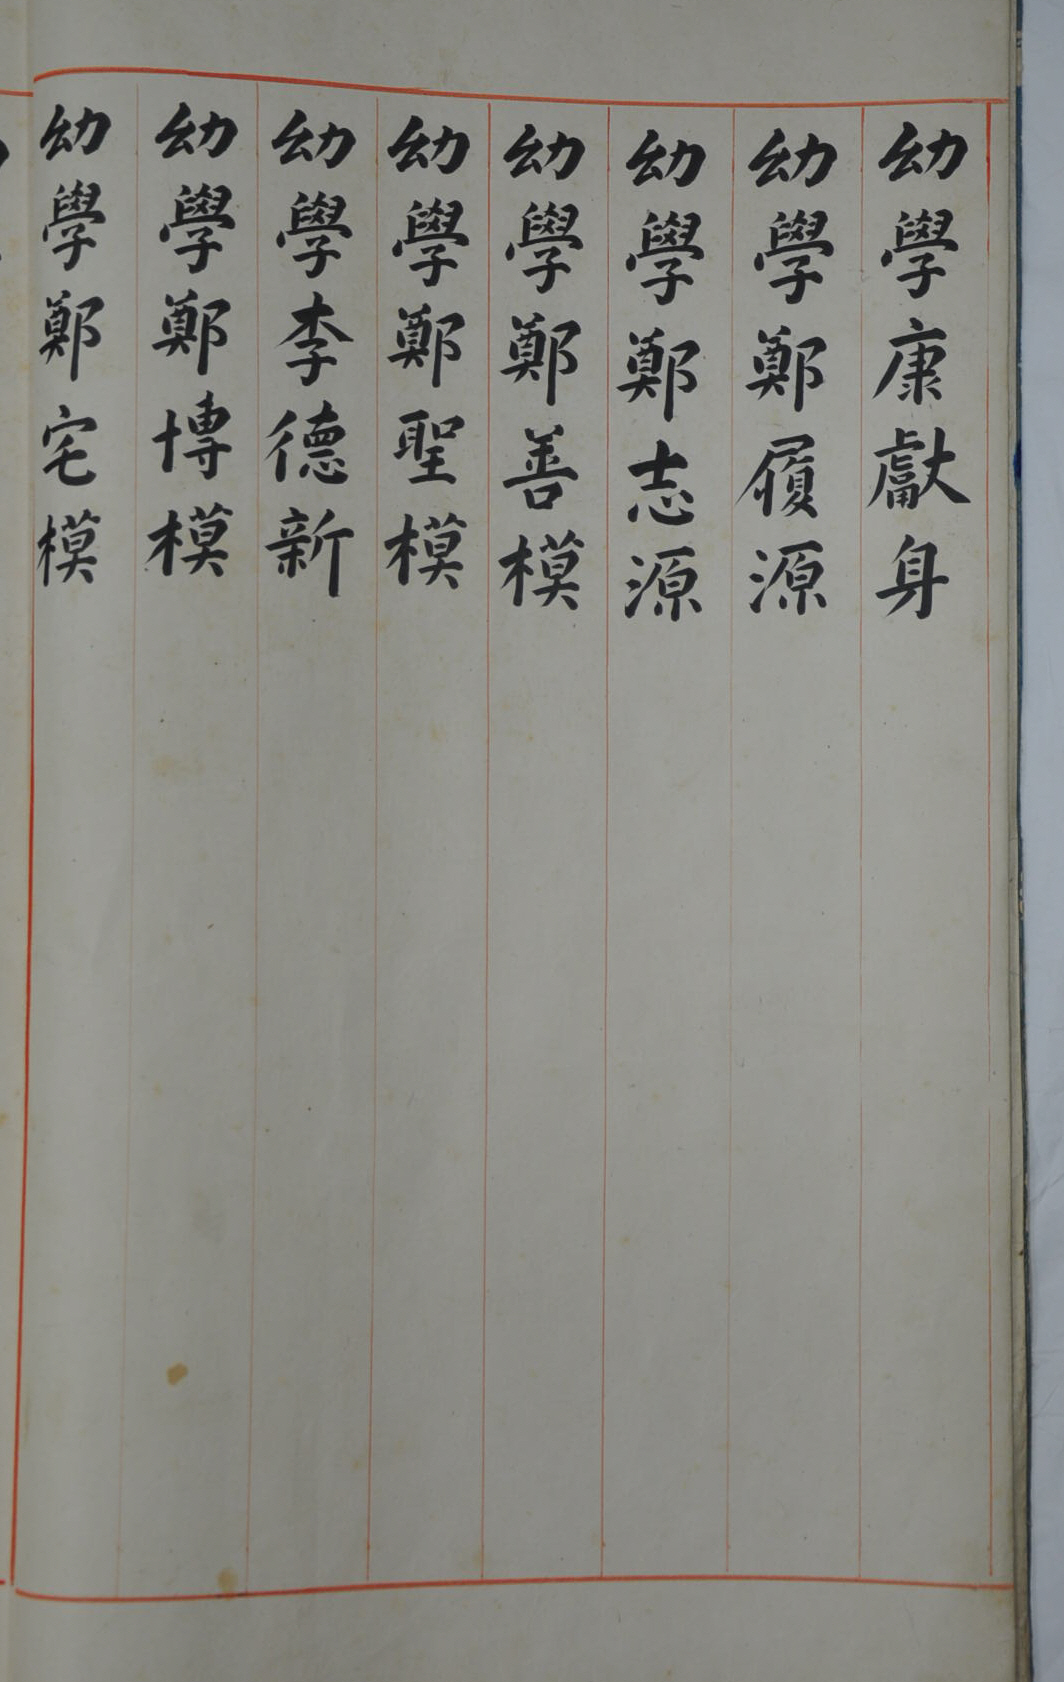 幼學康獻身
幼學鄭履源
幼學鄭志源
幼學鄭善模
幼學鄭聖模
幼學李德新
幼學鄭博模
幼學鄭宅模